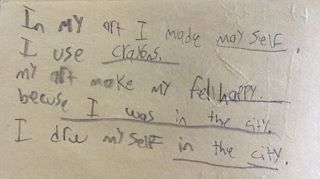 In MY art I made may self.
I use crayons.
my art make my fell happy.
becuse I was in the city.
I drw my self in the city.